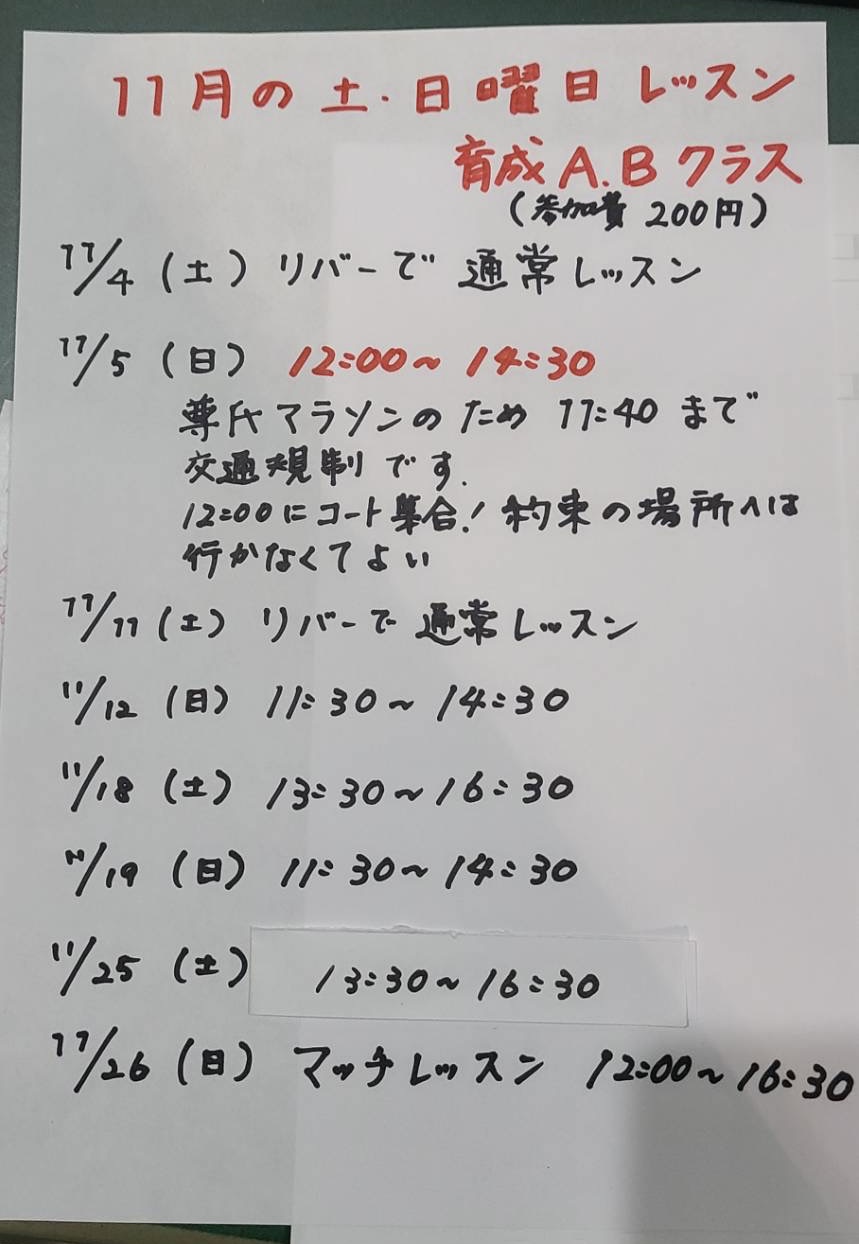 11月の土・日曜日レッスン
育成A.Bクラス
(参加費 200円)
11/4 (土) リバーで 通常レッスン
11/5 (日) 12:00~14:30
尊氏マラソンのため 11:40 まで
交通規制です.
12:00にコート集合! 約束の場所へは
行かなくてよい
11/11 (土) リバーで 通常レッスン
11/12 (日) 11:30~14:30
11/18 (土) 13:30~16:30
11/19 (日) 11:30~14:30
11/25 (土) 13:30~16:30
11/26 (日) マッチレッスン 12:00~16:30